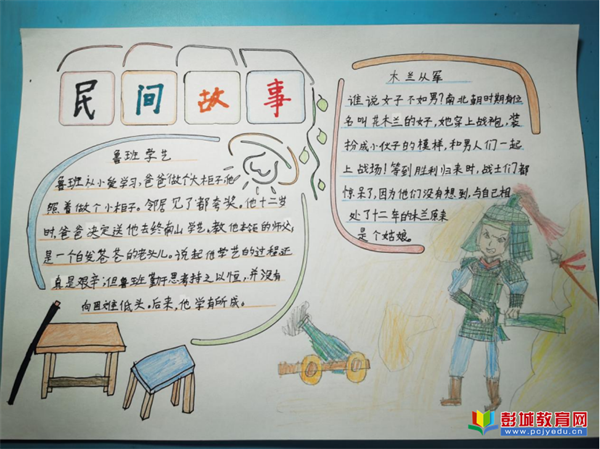 民间故事
鲁班学艺
鲁班从小爱学习,爸爸做个大柜子,他
照着做个小柜子。邻居见了都夸奖。他十二岁
时,爸爸决定送他去终南山学艺。教他本领的师父,
是一个白发苍苍的老头儿。说起他学艺的过程还
真是艰辛;但鲁班勤于思考持之以恒,并没有
向困难低头。后来,他学有所成。
木兰从军
谁说女子不如男?南北朝时期有位
名叫花木兰的女子,她穿上战袍,装
扮成小伙子的模样,和男人们一起
上战场!等到胜利归来时,战士们都
惊呆了,因为他们没有想到,与自己相
处了十二年的木兰原来
是个姑娘。
彭城教育网
www.pcjyedu.cn